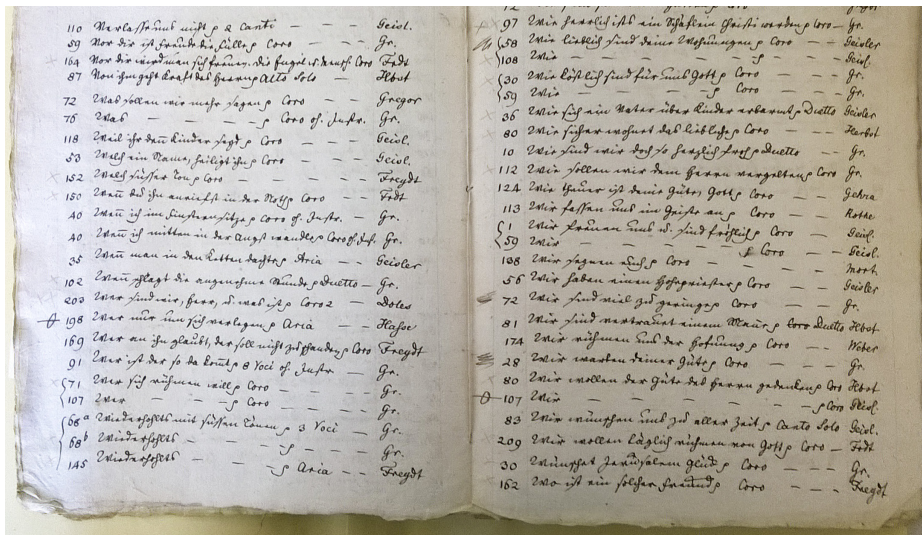 110 Verlass uns nicht p 2 Canti – – – Geisl.
59 Vor dir ist Freude die Fülle p Coro – – – Gr.
164 Vor dir wird man sich freuen. die Engel p Coro Frdt
87 Von ihm geht Kraft des Herrn p Alto Solo – – Hbst
72 Was sollen wir mehr sagen p Coro – – – Gregor
76 Was – – – p Coro oh. Instr. Gr.
118 Weil ihr denn Kinder seyd p Coro – – – Geisl.
53 Welch ein Name, heiligt ihn p Coro – – Geisl.
152 Welch süsser Ton p Coro – – – Freydt
150 Wenn du ihn anriefst in der Noth p Coro – – Frdt
40 Wenn ich im Finstern sitze p Coro oh. Instr. – Gr.
40 Wenn ich mitten in der Angst wandle p Coro oh. Inst. Gr.
35 Wenn man in den Ketten dachte p Aria – – Geisler
102 Wenn schlägt die angenehme Stunde p Duetto – Gr.
203 Wer sind wir, Herr, u. was ist p Coro 2 – Doles
198 Wer nur um sich verlegen p Aria – – Hasse
169 Wer an ihn glaubt, der soll nicht zu schanden p Coro Freydt
91 Wer ist der so da kommt p 8 Voci oh. Instr – Gr.
71 Wer sich rühmen will p Coro – – – Gr.
107 Wer – – p Coro – – – Gr.
68a Wiederhohlts mit süssen Tönen p 3 Voci – Gr.
68b Wiederhohlts – – – p – – Gr.
145 Wiederhohlts – – – p Aria – – Freydt
97 Wie herrlich ists ein Schäflein Christi werden p Coro – Gr.
58 Wie lieblich sind deine Wohnungen p Coro – – Geisler
108 Wie – – – – – p – – Geisl.
30 Wie köstlich sind für uns Gott p Coro – – Gr.
59 Wie – – – – p Coro – – Gr.
36 Wie sich ein Vater über Kinder erbarmt p Duetto Geisler
80 Wie sicher wohnet das liebliche p Coro – – Herbst
10 Wie sind wir doch so herzlich froh p Duetto – – Gr.
112 Wie sollen wir dem Herrn vergelten p Coro Gr.
124 Wie theuer ist deine Güte, Gott p Coro – – Gehra
113 Wir fassen uns im Geiste an p Coro – – Rothe
1 Wir freuen uns u. sind fröhlich p Coro – – Geisl.
59 Wir – – – – p Coro – – Geisl.
138 Wir segnen euch p Coro – – – – Mort.
56 Wir haben einen Hohepriester p Coro – – Geisler
72 Wir sind viel zu geringe p Coro – – – Gr.
81 Wir sind vertrauet einem Mann p Coro Duetto Hbst.
174 Wir rühmen uns der Hofnung p Coro – – Weber
28 Wir warten deiner Güte p Coro – – – Gr.
80 Wir wollen der Güte des Herrn gedenken p Coro Hbst
107 Wir – – – – – – p Coro Geisl.
83 Wir wünschen uns zu aller Zeit p Canto Solo Geisl.
209 Wir wollen täglich rühmen von Gott p Coro – Frdt
30 Wünschet Jerusalem Glück p Coro – – Gr.
162 Wo ist ein solcher Freund p Coro – – – Freydt